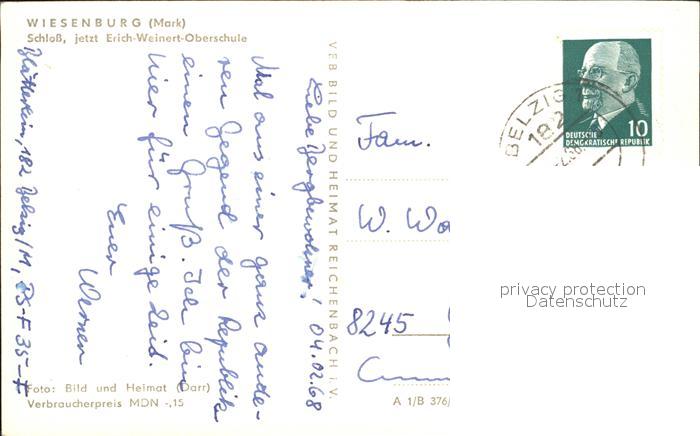 WIESENBURG (Mark)
Schloß, jetzt Erich-Weinert-Oberschule
Liebe Bergbewohner! 04.02.68
Mal aus einer ganz ande-
ren Gegend der Republik
einen Gruß. Ich bin
hier für einige Zeit.
Euer
Werner
182 Belzig/M,
Foto: Bild und Heimat (Darr)
Verbraucherpreis MDN -,15
VEB BILD UND HEIMAT REICHENBACH i. V.
BELZIG
182
DEUTSCHE
DEMOKRATISCHE REPUBLIK
10
Fam.
W. Wa
8245
A 1/B 376/
privacy protection
Datenschutz